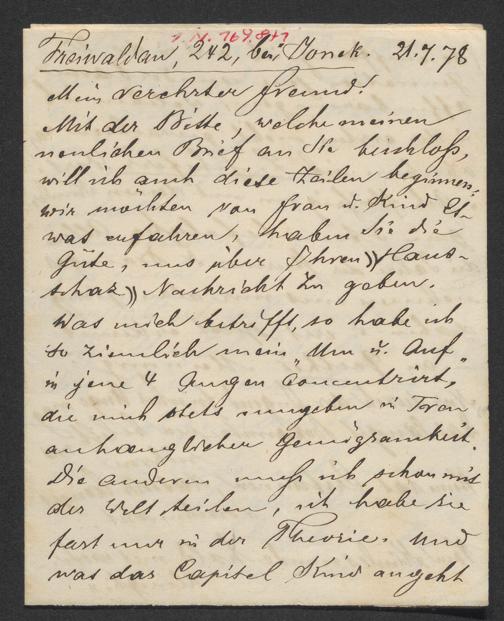 Freiwaldau, 242, bei Jonck. 21.7.78
Mein verehrter Freund!
Mit der Bitte, welche meinen
neulichen Brief an Sie beschloß,
will ich auch diese Zeilen beginnen:
wir möchten von Frau u. Kind Et-
was erfahren, haben Sie die
Güte, uns über Ihren »Haus-
schatz» Nachricht zu geben.
Was mich betrifft, so habe ich
so ziemlich mein „Um u. Auf„
in jene 4 Augen concentrirt,
die mich stets umgeben in
anhänglicher Genügsamkeit.
Die anderen muß ich schon mit
der Welt teilen, ich habe sie
fast nur in der Theorie. Und
was das Capitel Kind angeht